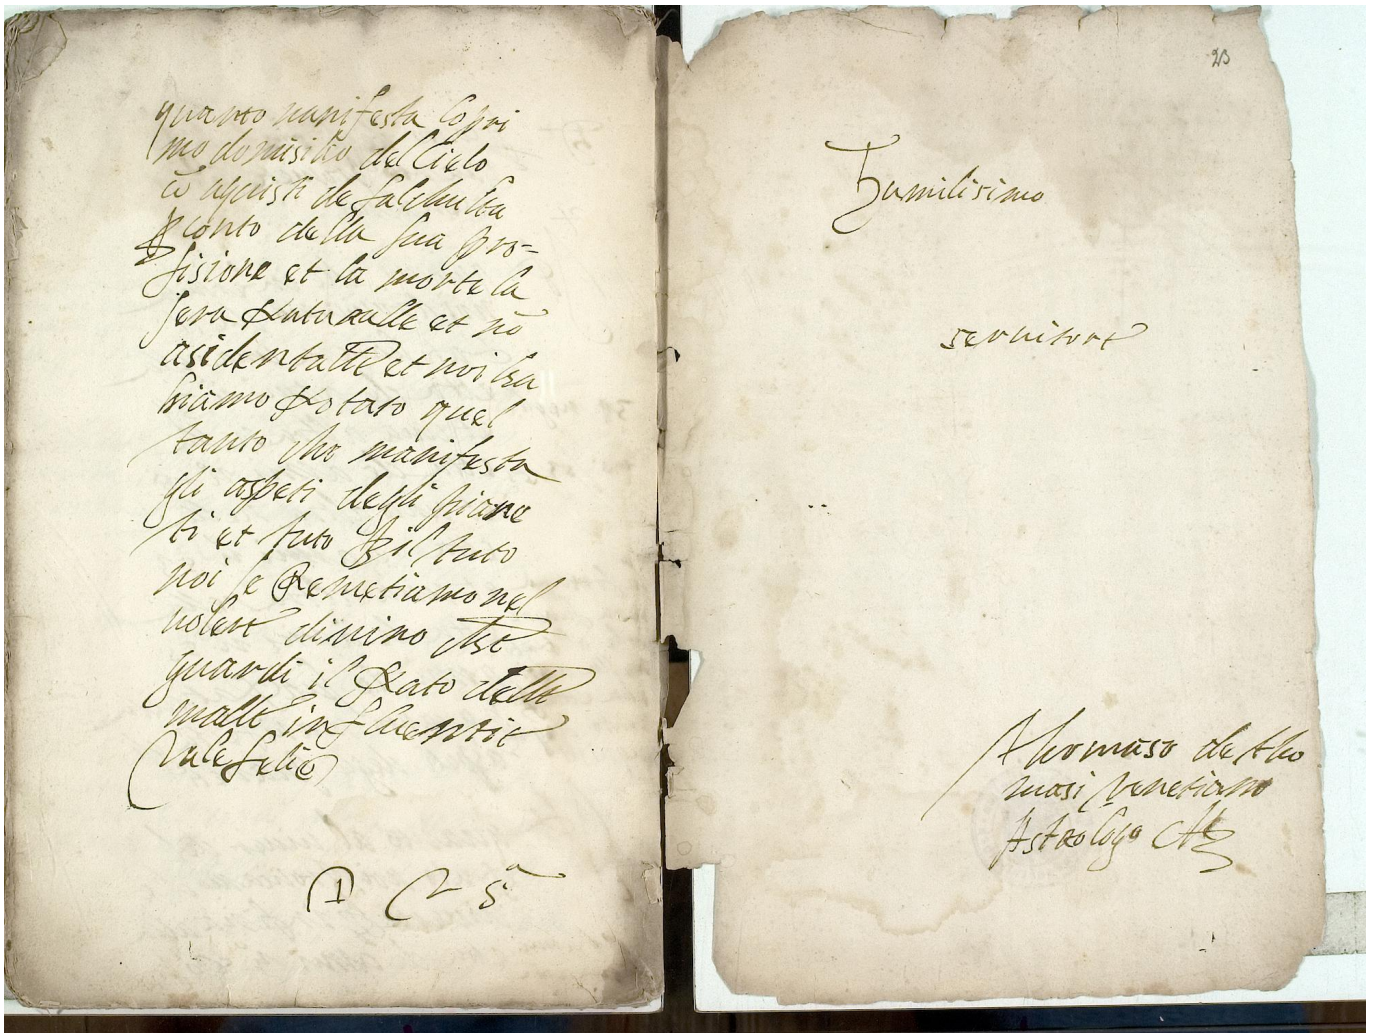 quanto manifesta lo pri
mo domisilio del Cielo
cō aquisti de falchulta
p conto della sua pro-
fisione et la morte la
sera naturalle et nō
asidentalle et noi ha
biamo notato quel
tanto che manifesta
gli aspeti degli piane
ti et tuto p il tuto
noi se Remetiamo nel
volere divino che
guardi il nato delle
malle influentie
Vale felic
23
Humilisimo
servitore
Thomaso de tho
masi venetiano
Astrologo